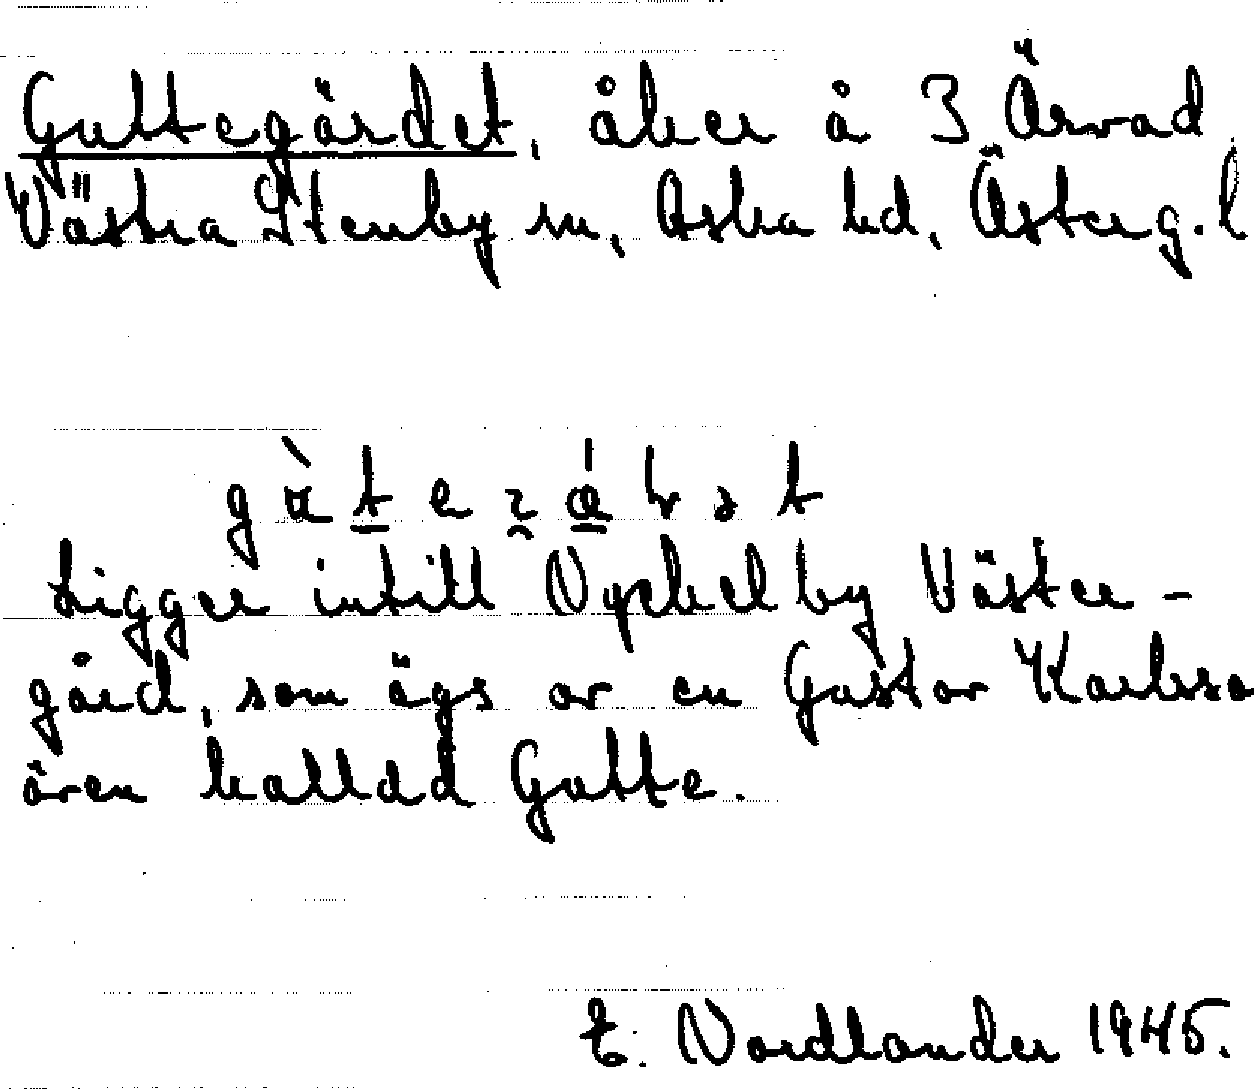 Guttegärdet, åker å 3 Ärvad,
Västra Stenby sn, Aska hd, Österg. l
Ligger intill Nyckelby Väster-
gård, som ägs av en Gustav Karlsso
även kalldd Gutte.
E. Nordlander 1945.